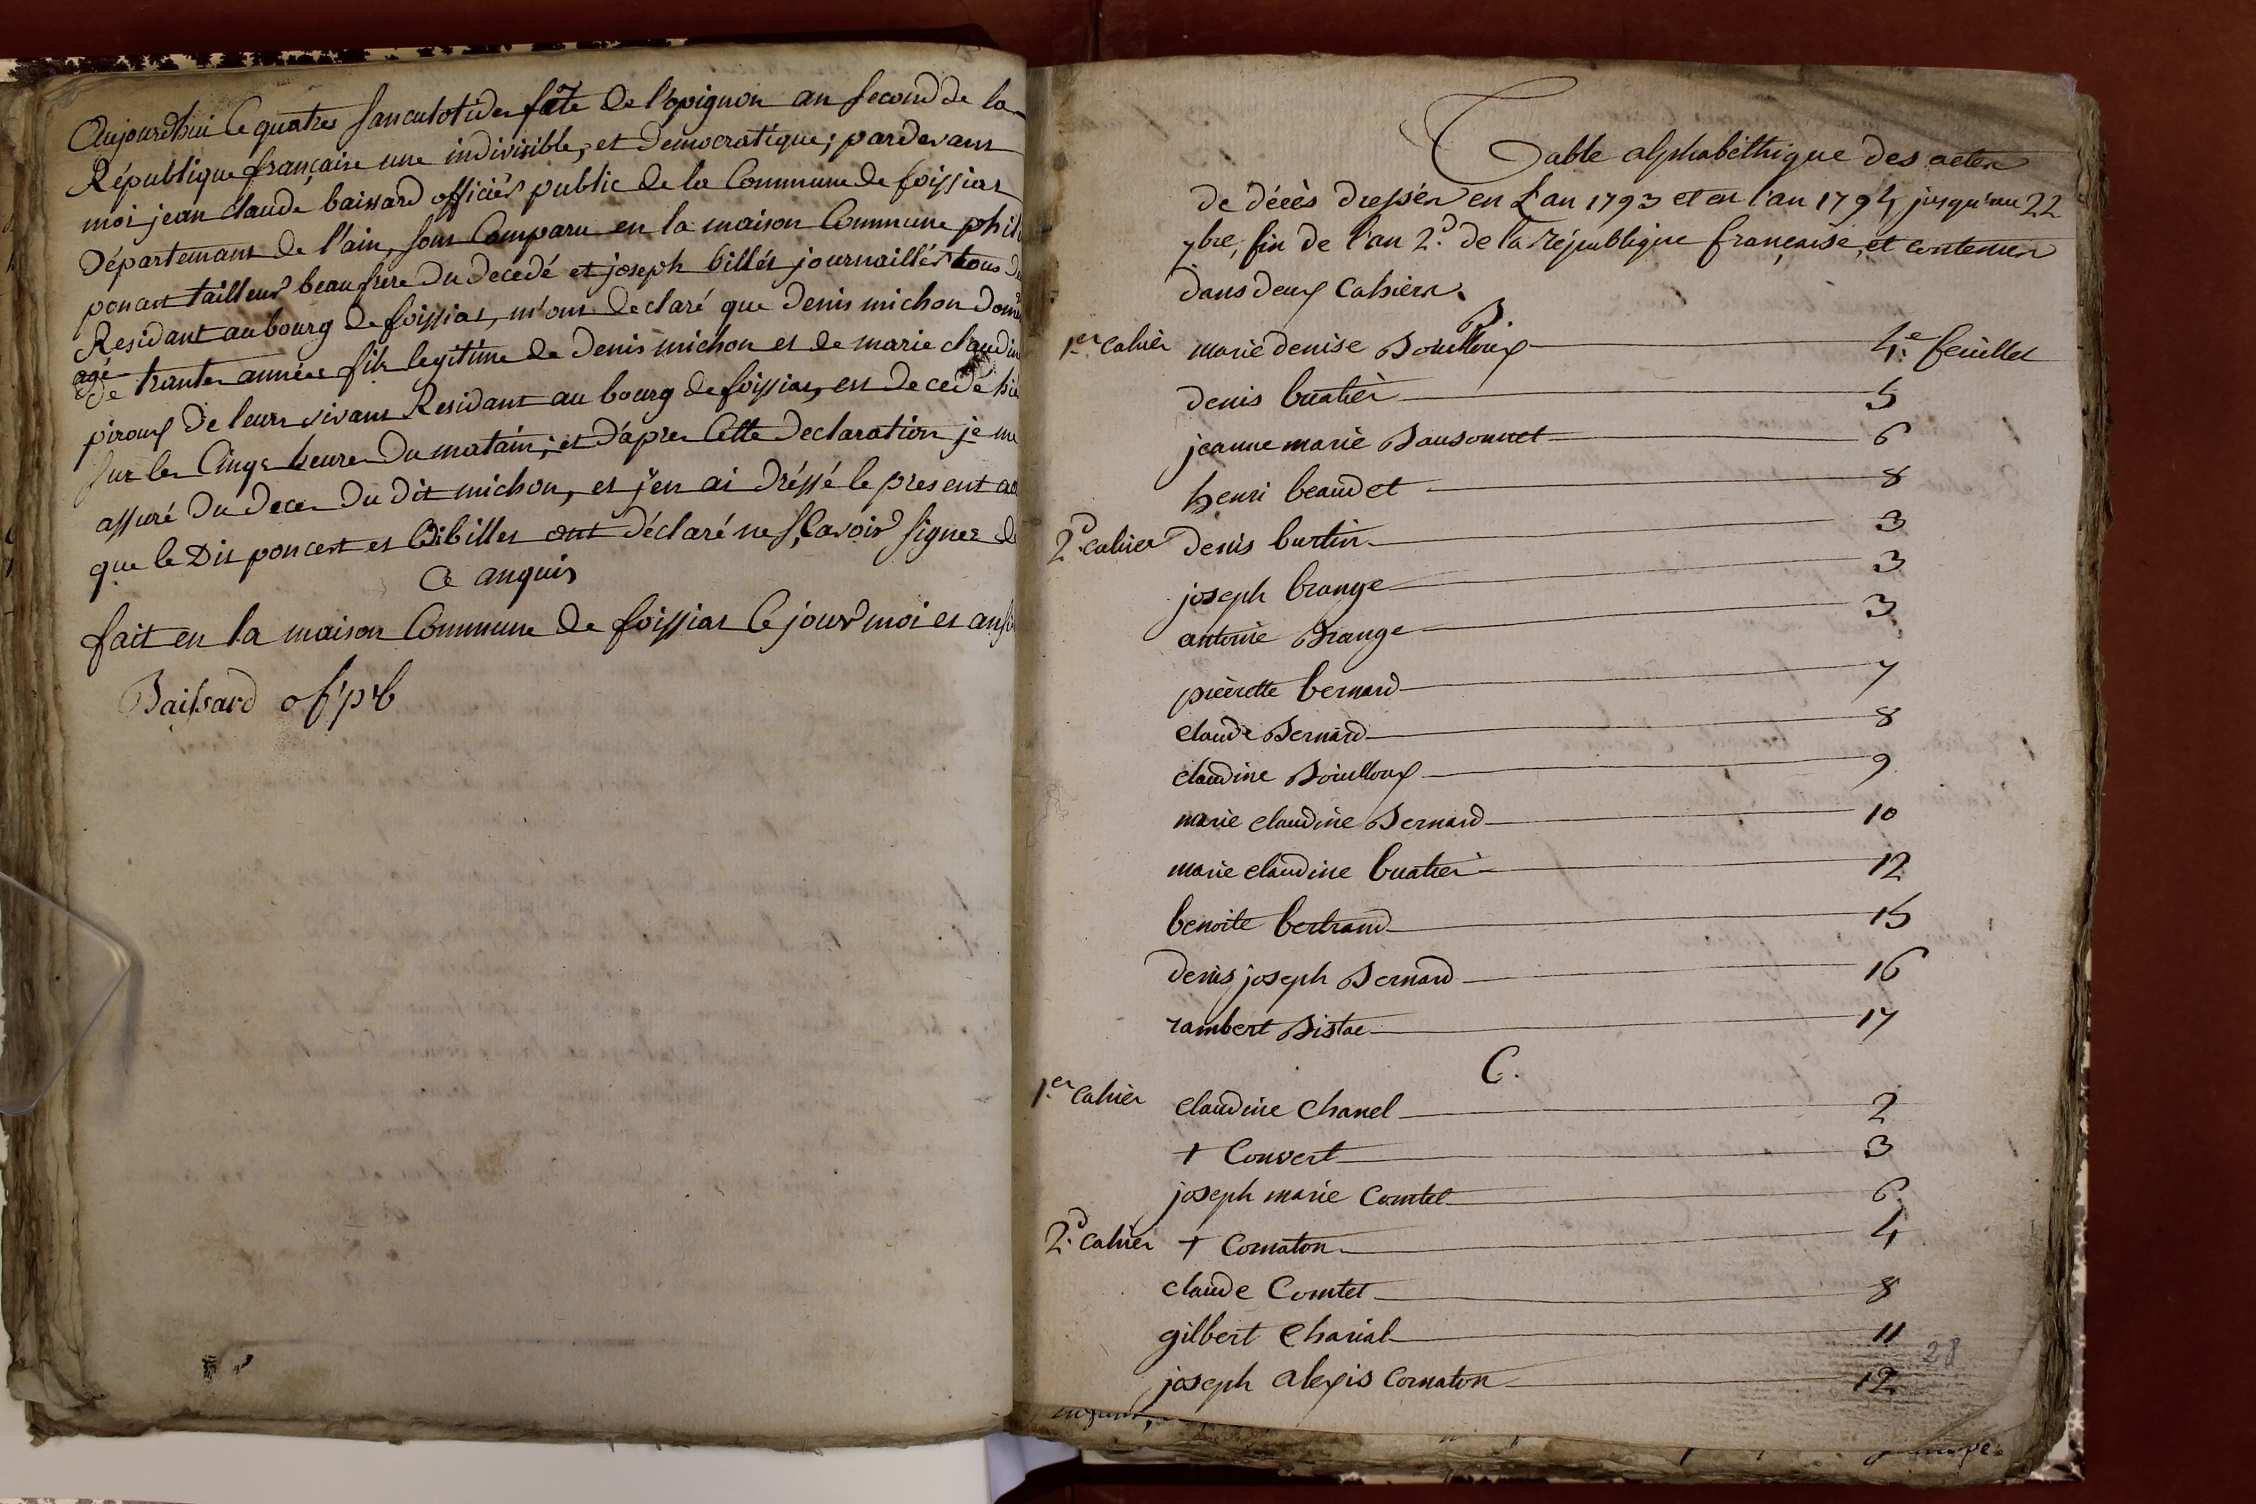 Aujourdhui le quatres sanculotides fête de l'opignon an second de la
République française une indivisible, et democratique; pardevant
moi jean claude baissard officier public de la Commune de foissiat
Département de l'ain, sont Comparu en la maison Commune phili
poncet tailleur beaufrere du decedé et joseph billet journaillér tous d
Residant au bourg de foissiat, m'ont declaré que denis michon
agé
de trantes années fils legitime de denis michon et de marie claudin
piroux de leurs vivant Residant au bourg de foissiat, est decedé hie
sur les Cinqs heures du matain; et d'apres Cette declaration je me
assuré du deces du dit michon, et j'en ai dréssé le present ac
que le dit poncet et billet ont déclaré ne sçavoir signer de
Ce anquis
fait en la maison Commune de foissiat le jour moi et an
Baissard of pb
Table alphabéthique des actes
de décès dressés en L'an 1793 et en l'an 1794 jusqu'au 22
7bre, fin de l'an 2d. de la république française, et contenus
dans deux Cahiers.
B
1.er Cahier marie denise Bouilloux 4.e feuillet
denis buatier 5
jeanne marie Bausonnet 6
henri beaudet 8
2d. Cahier denis burtin 3
joseph brange 3
antoine Brange 3
pièrette bernard 7
claude Bernard 8
claudine Bouilloux 9
marie claudine Bernard 10
marie claudine buatier 12
benoite bertrand 15
denis joseph Bernard 16
rambert Bistac 17
C.
1.er Cahier claudine Chanel 2
+ Convert 3
joseph marie Comtet 6
2d. Cahier + Cornaton 4
claude Comtet 8
gilbert Charial 11
28
joseph alexis Cornaton 12